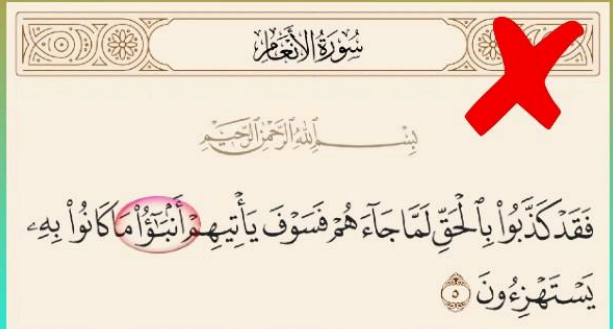 سُورَةُ الأَنْعَامِ
بِسْمِ ٱللَّهِ ٱلرَّحْمَٰنِ ٱلرَّحِيمِ
فَقَدْ كَذَّبُوا۟ بِٱلْحَقِّ لَمَّا جَآءَهُمْ فَسَوْفَ يَأْتِيهِمْ أَنۢبَـٰٓؤُا۟ مَا كَانُوا۟ بِهِۦ
يَسْتَهْزِءُونَ ٥